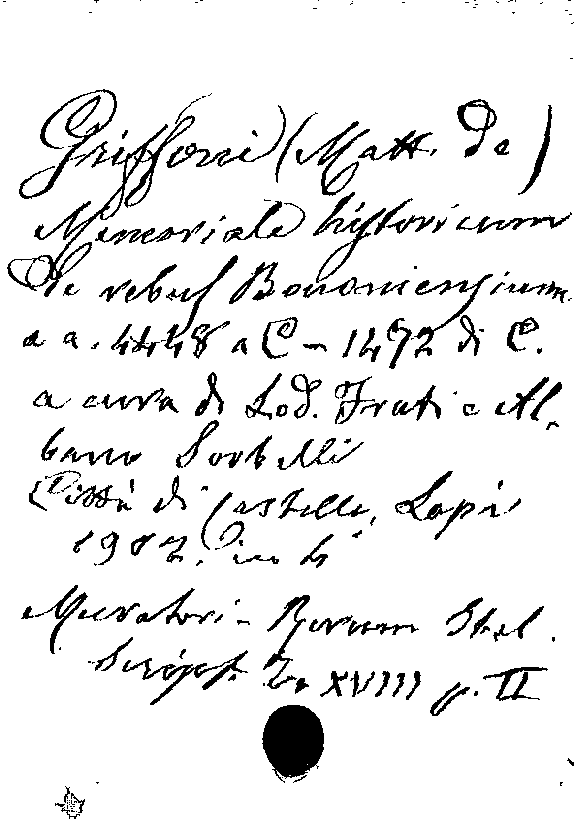 Griffoni (Matt. De)
Memoriale historicum
De rebus Bononiensium
a a. 4448 a C - 1472 di C.
a cura di Lod. Frati e Al-
bano Sorbelli
Città di Castello, Lapi
1902, in 4°
Muratori - Rerum Ital.
Script. T. XVIII p. II